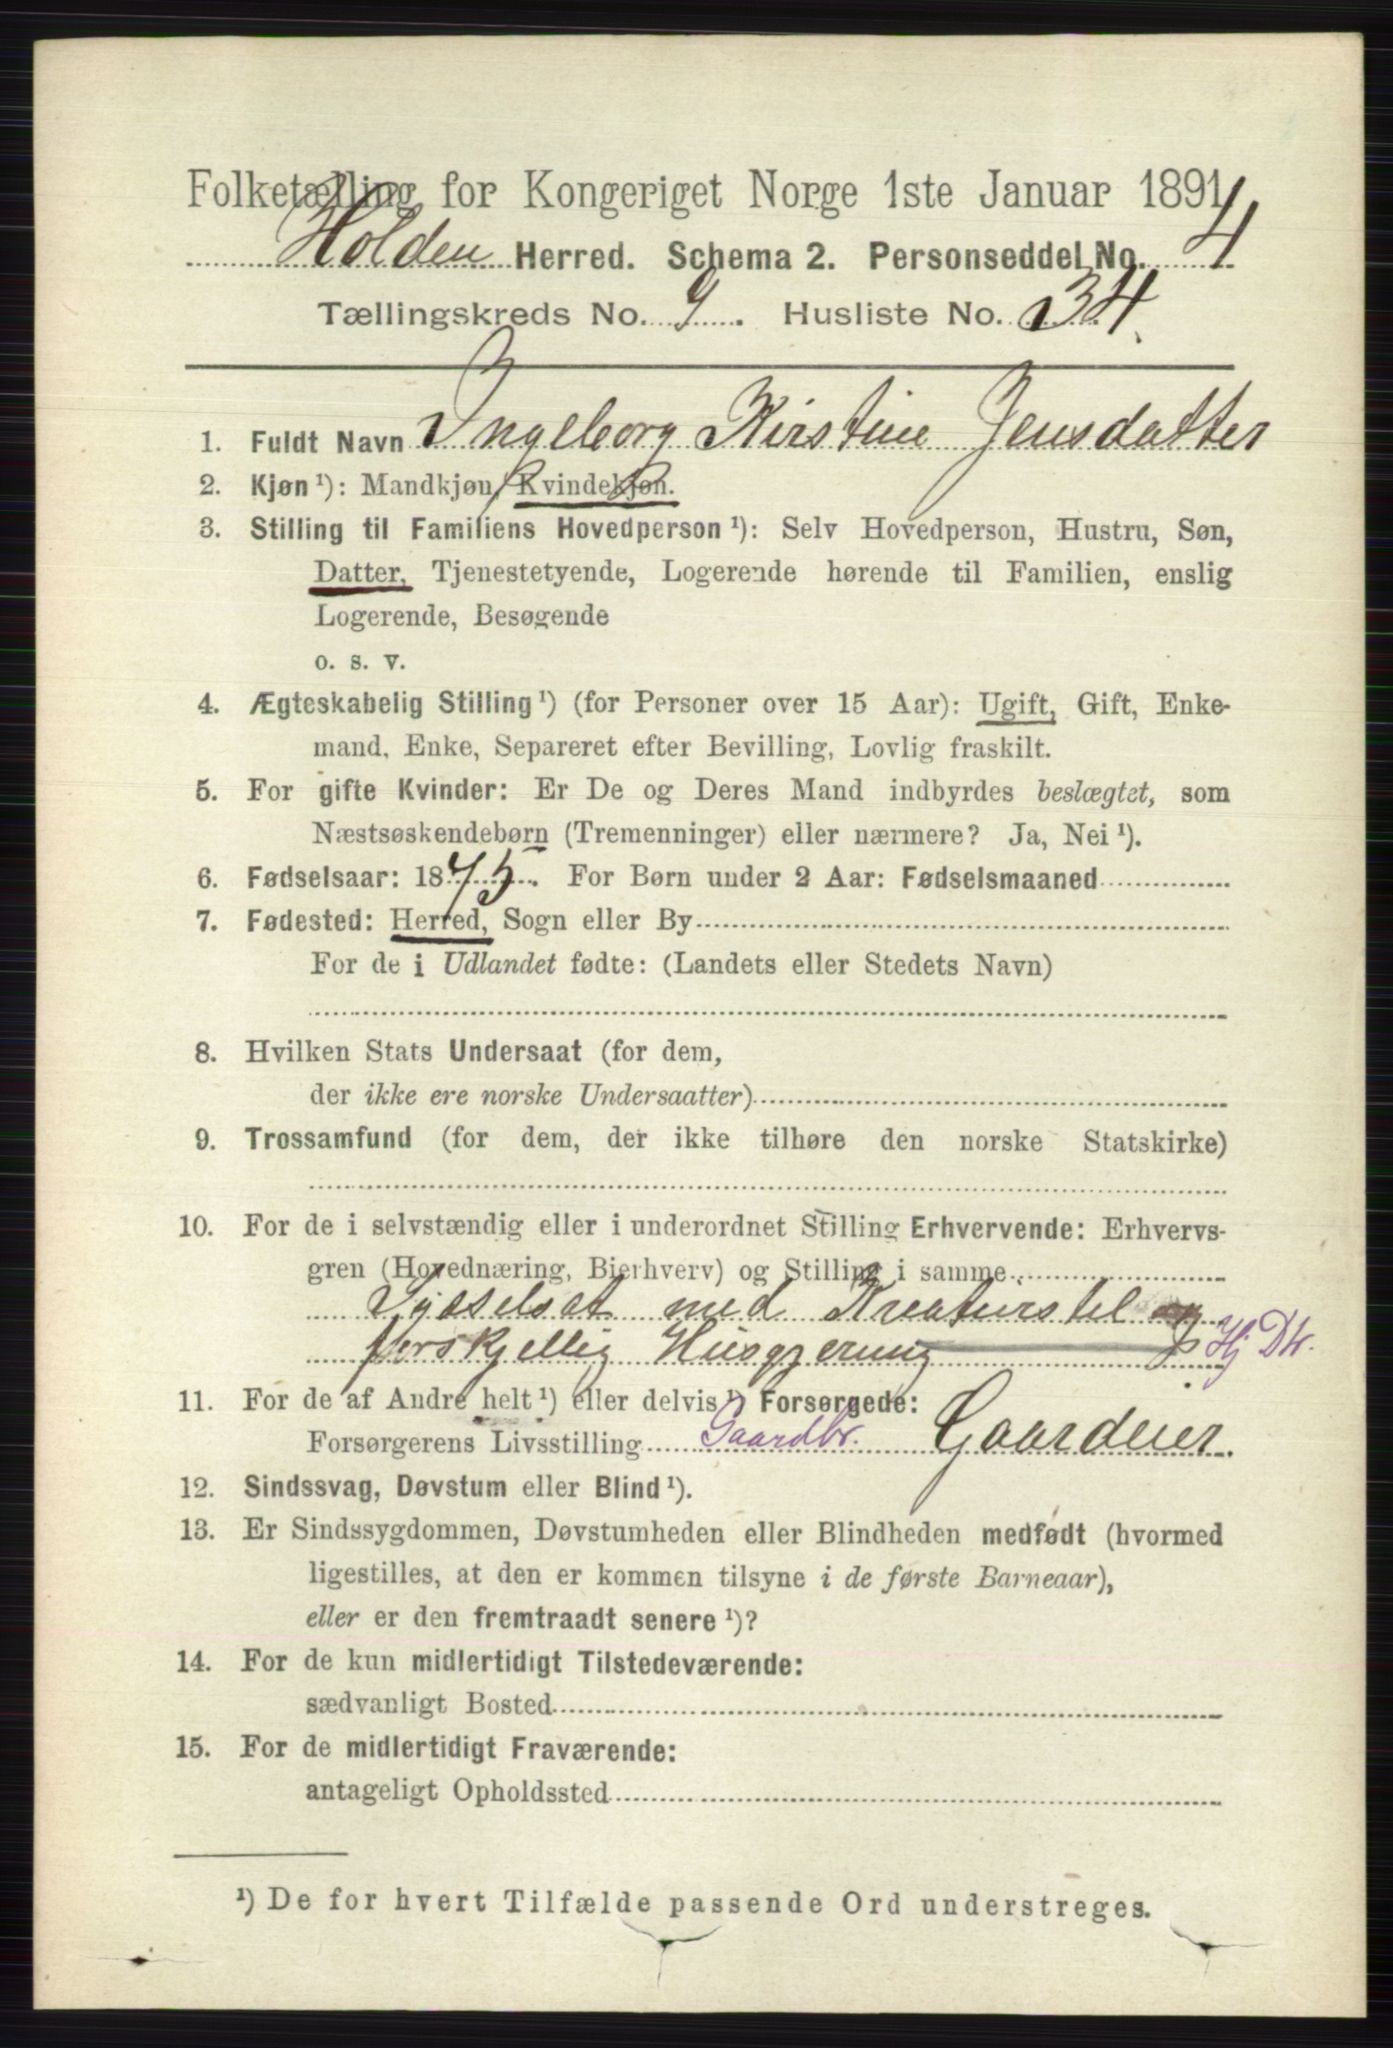 Folketælling for Kongeriget Norge 1ste Januar 1891
Holden Herred. Schema 2. Personseddel No. 4
Tællingskreds No. 9. Husliste No. 34.
1. Fuldt Navn Ingeborg Kirstine Jensdatter
2. Kjøn ¹): Mandkjøn, Kvindekjøn.
3. Stilling til Familiens Hovedperson ¹): Selv Hovedperson, Hustru, Søn,
Datter, Tjenestetyende, Logerende hørende til Familien, enslig
Logerende, Besøgende
o. s. v.
4. Ægteskabelig Stilling ¹) (for Personer over 15 Aar): Ugift, Gift, Enke-
mand, Enke, Separeret efter Bevilling, Lovlig fraskilt.
5. For gifte Kvinder: Er De og Deres Mand indbyrdes beslægtet, som
Næstsøskendebørn (Tremenninger) eller nærmere? Ja, Nei ¹).
6. Fødselsaar: 1875. For Børn under 2 Aar: Fødselsmaaned
7. Fødested: Herred, Sogn eller By
For de i Udlandet fødte: (Landets eller Stedets Navn)
8. Hvilken Stats Undersaat (for dem,
der ikke ere norske Undersaatter)
9. Trossamfund (for dem, der ikke tilhøre den norske Statskirke)
10. For de i selvstændig eller i underordnet Stilling Erhvervende: Erhvervs-
gren (Hovednæring, Bierhverv) og Stilling i samme
Sysselsat med Kreaturstel og
forskjellig Husgjerning Hj Dtr.
11. For de af Andre helt ¹) eller delvis ¹) Forsørgede:
Forsørgerens Livsstilling Gaardbr. Gaardeier.
12. Sindssvag, Døvstum eller Blind ¹).
13. Er Sindssygdommen, Døvstumheden eller Blindheden medfødt (hvormed
ligestilles, at den er kommen tilsyne i de første Barneaar),
eller er den fremtraadt senere ¹)?
14. For de kun midlertidigt Tilstedeværende:
sædvanligt Bosted
15. For de midlertidigt Fraværende:
antageligt Opholdssted
¹) De for hvert Tilfælde passende Ord understreges.